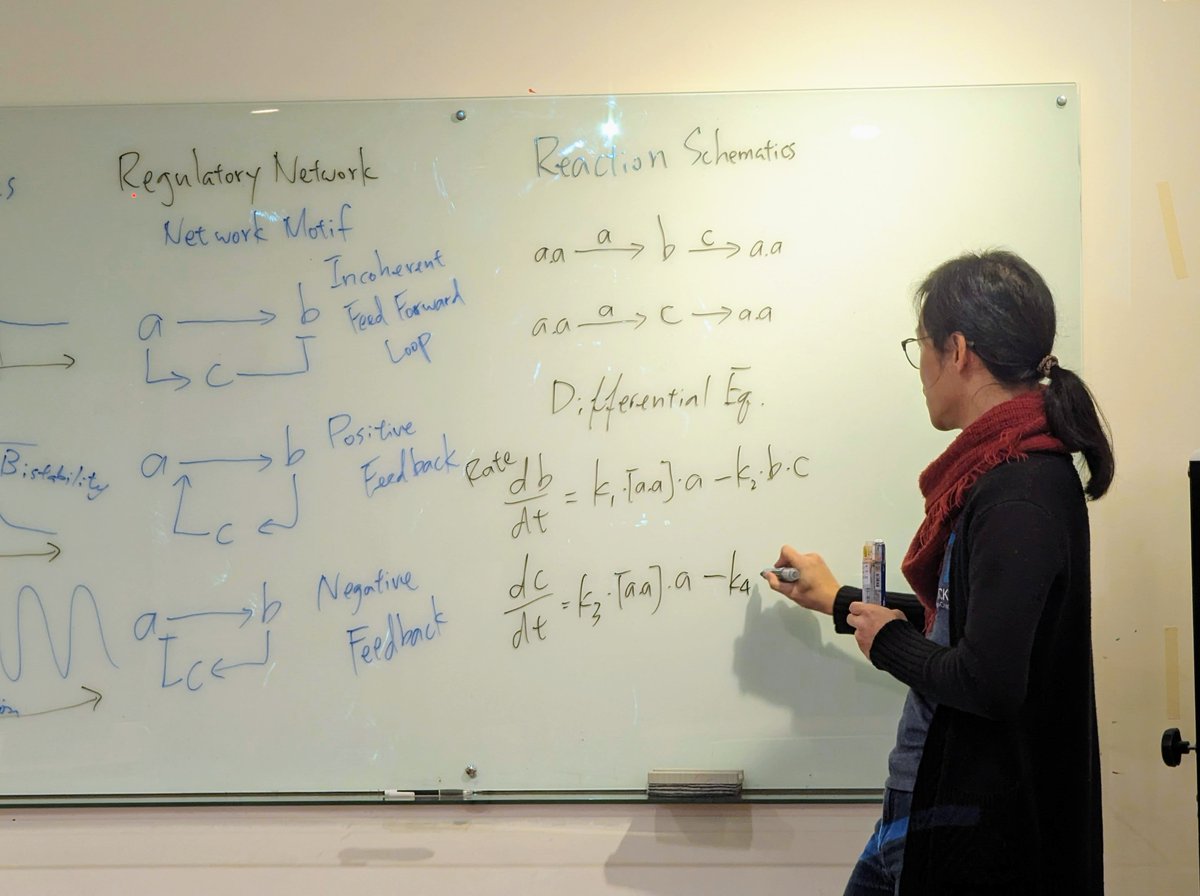 Regulatory Network
Network Motif
a → b
c
Incoherent
Feed Forward
Loop
Bistability
a → b
c
Positive
Feedback
a → b
c
Negative
Feedback
Reaction Schematics
a.a —a→ b —c→ a.a
a.a —a→ c → a.a
Differential Eq.
Rate
db/dt = k₁·[a.a]·a − k₂·b·c
dc/dt = k₃·[a.a]·a − k₄